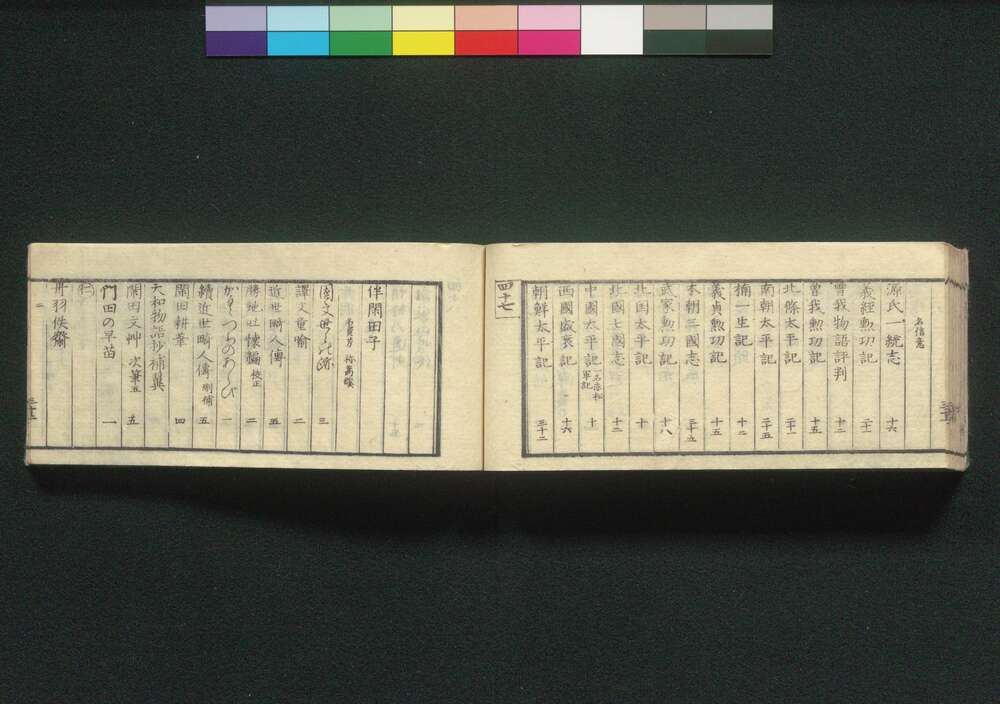 名信意
源氏一統志 十六
義經勲功記 二十一
曽我物語評判 十二
曽我勲功記 十五
北條太平記 二十一
南朝太平記 二十五
楠一生記 十二
義貞勲功記 十五
本朝三國志
武家勲功記 十八
北国太平記 十
北國士國志 十二
中國太平記 一名赤松軍記 十
西國盛衰記 十六
朝鮮太平記 三十二
四十七
伴閑田子
名資芳 称蒿蹊
國文世々の跡 三
譯文童喩 二
近世畸人傳 五
勝地吐懐編 校正 二
かぐつちのあらび 一
續近世畸人傳 刪補 五
閑田耕筆 四
大和物語抄補翼
閑田文艸 次筆五 五
門田の早苗 一
(仁)
丹羽佚齋